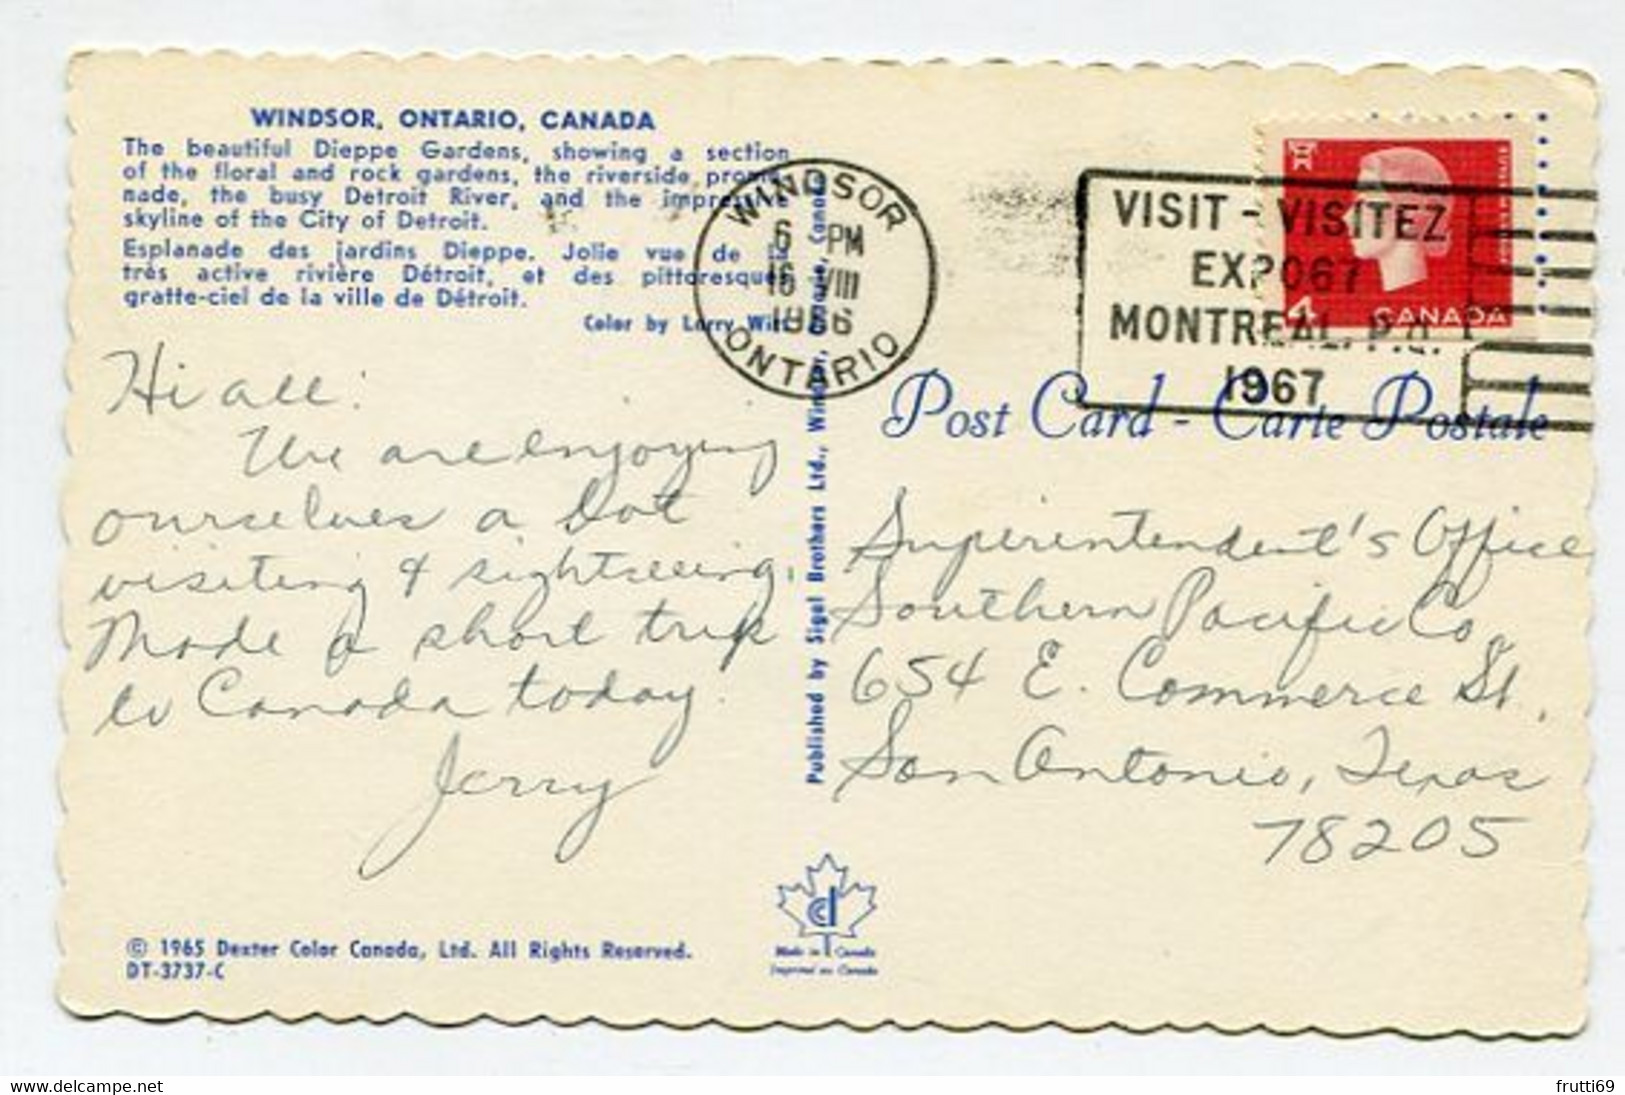 WINDSOR, ONTARIO, CANADA
The beautiful Dieppe Gardens, showing a section
of the floral and rock gardens, the riverside prome-
nade, the busy Detroit River, and the impressive
skyline of the City of Detroit.
Esplanade des jardins Dieppe. Jolie vue de la
très active rivière Détroit, et des pittoresques
gratte-ciel de la ville de Détroit.
Color by Larry Witt
Hi all:
We are enjoying
ourselves a lot
visiting & sightseeing.
Made a short trip
to Canada today.
Jerry
© 1965 Dexter Color Canada, Ltd. All Rights Reserved.
DT-3737-C
Published by Sigal Brothers Ltd., Windsor, Ontario, Canada
WINDSOR
6 PM
16 VIII
1966
ONTARIO
VISIT - VISITEZ
EXPO67
MONTREAL, P.Q.
1967
4 CANADA
POSTES POSTAGE
Post Card - Carte Postale
Superintendent's Office
Southern Pacific Co.
654 E. Commerce St.
San Antonio, Texas
78205
Made in Canada
Imprimé au Canada
frutti69